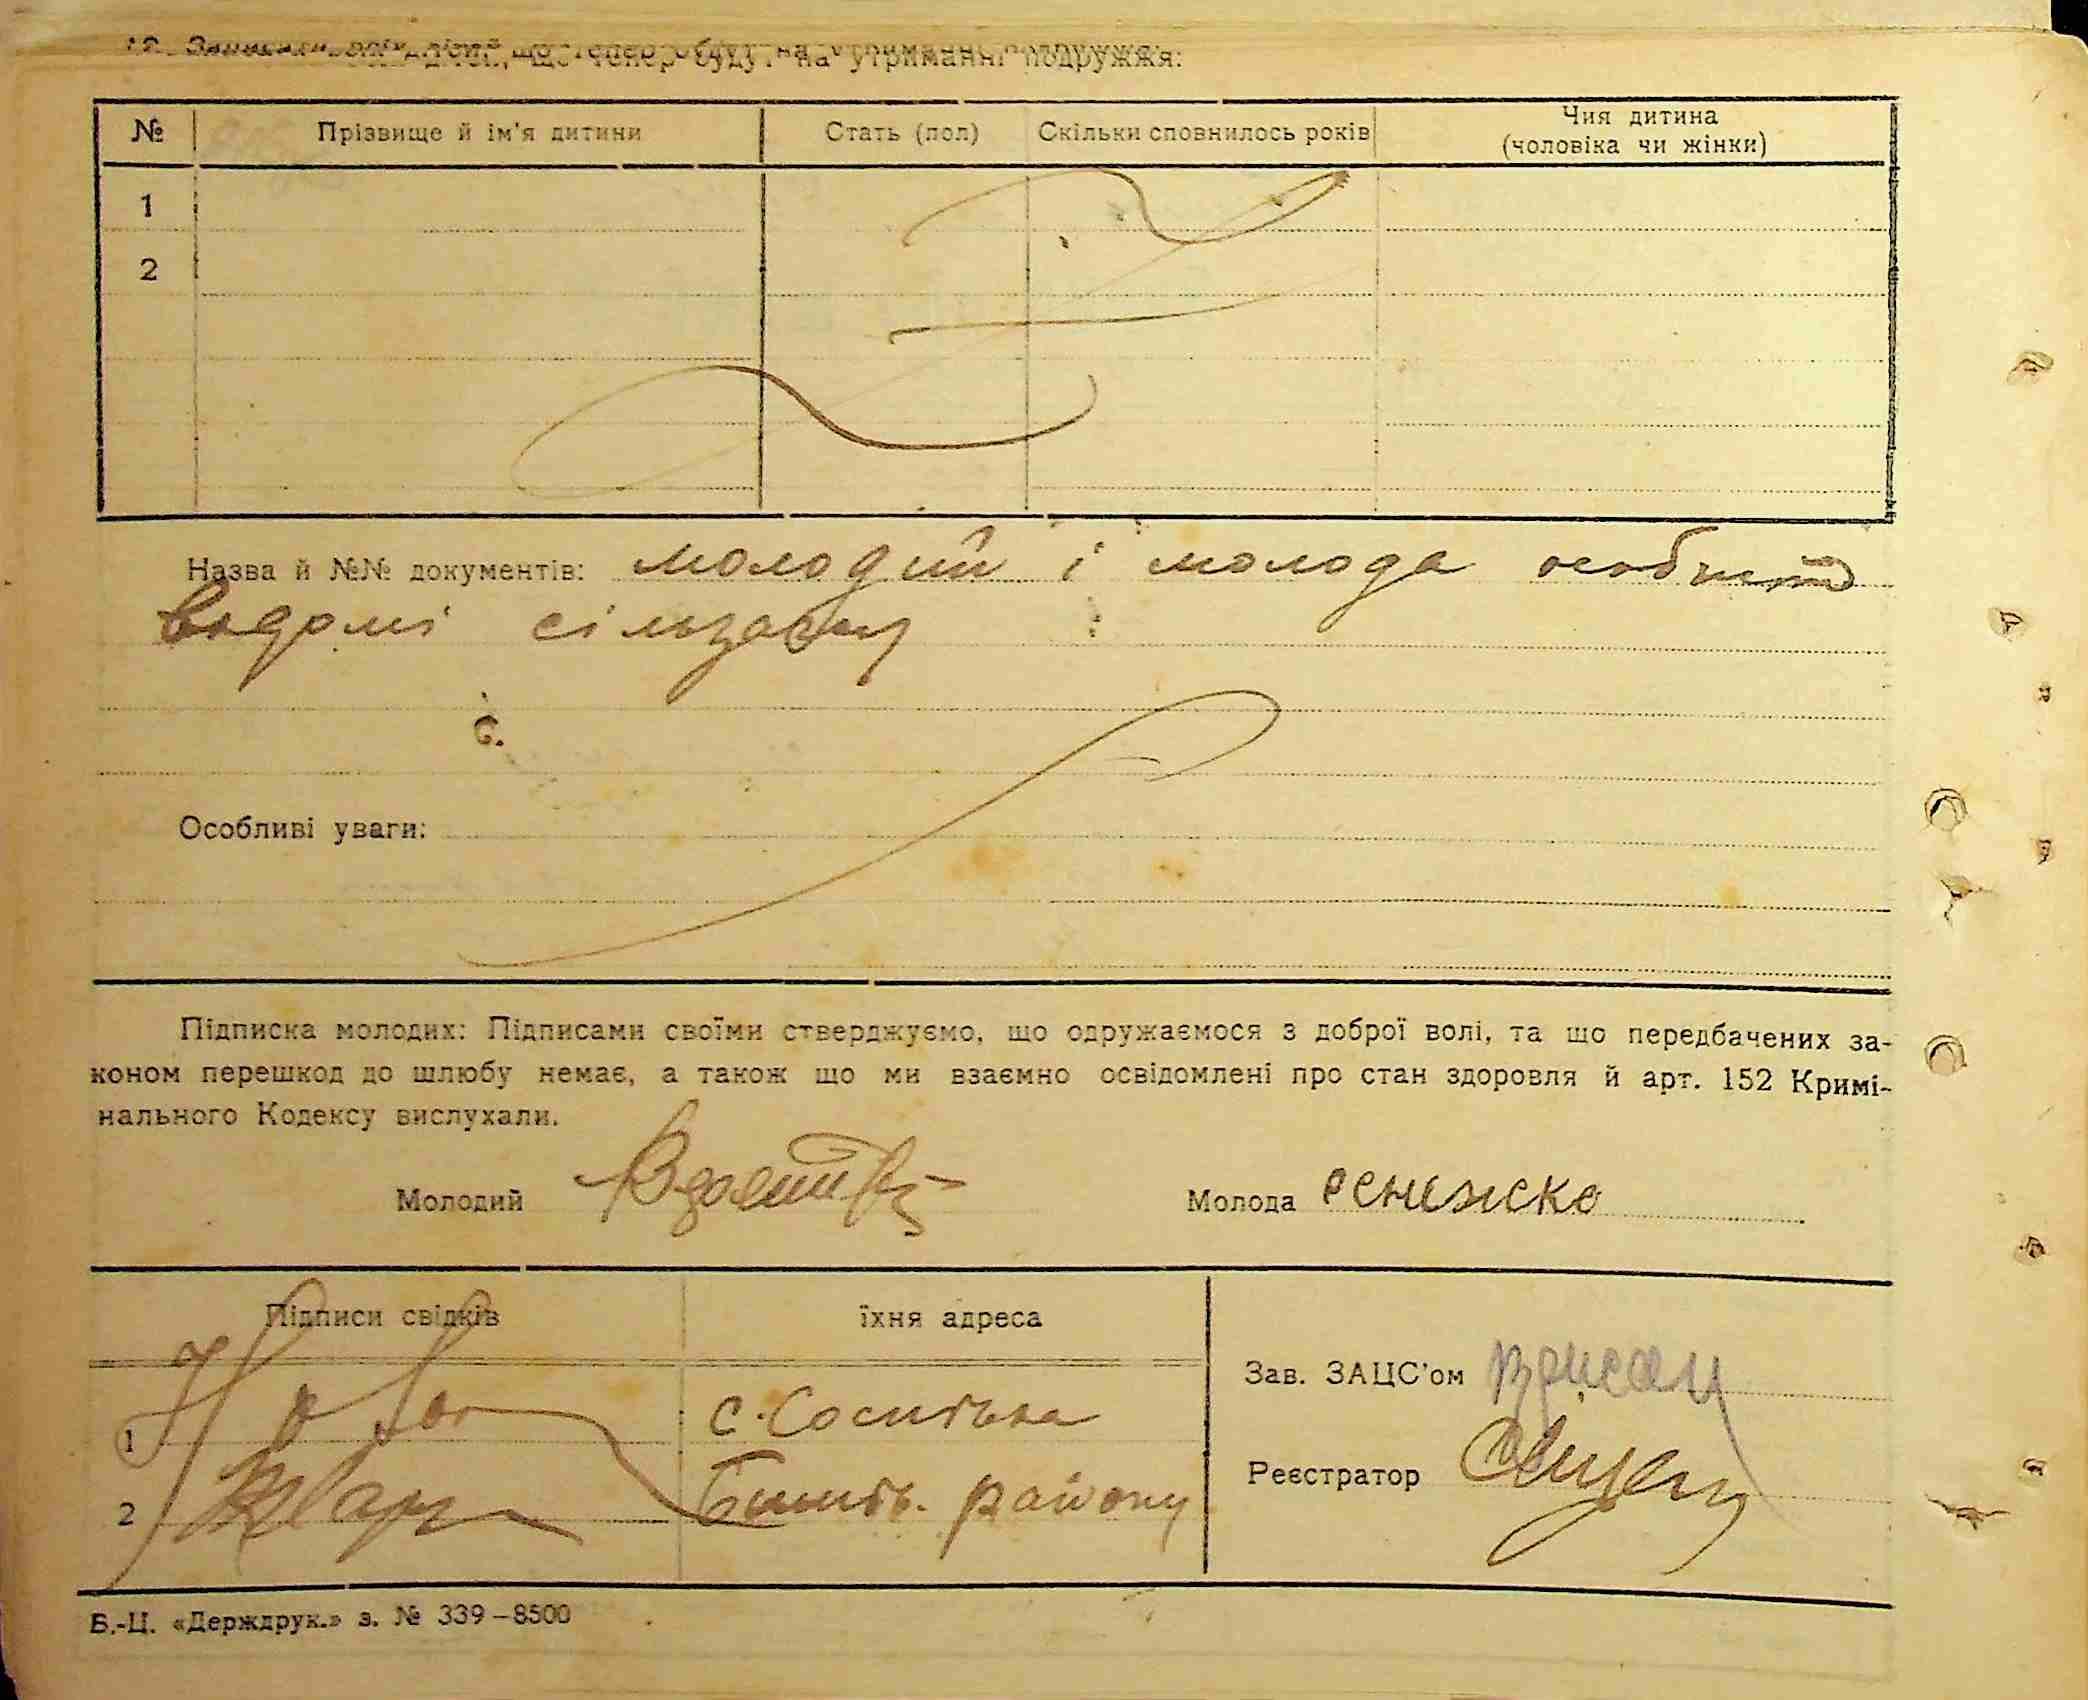 що тепер будуть на утриманні подружжя:
№ Прізвище й ім'я дитини Стать (пол) Скільки сповнилось років Чия дитина
(чоловіка чи жінки)
1
2
Назва й №№ документів: молодий і молода особисто
відомі сільзагсу
Особливі уваги:
Підписка молодих: Підписами своїми стверджуємо, що одружаємося з доброї волі, та що передбачених за-
коном перешкод до шлюбу немає, а також що ми взаємно освідомлені про стан здоровля й арт. 152 Кримі-
нального Кодексу вислухали.
Молодий Молода
Підписи свідків їхня адреса
Зав. ЗАЦС'ом
1 с.
2 району
Реєстратор
Б.-Ц. «Держдрук.» з. № 339–8500